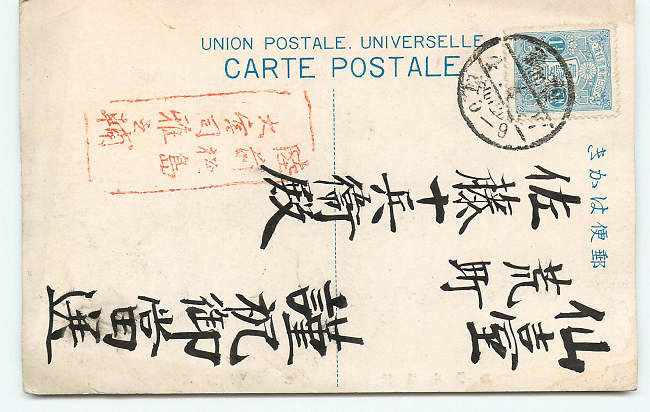 UNION POSTALE. UNIVERSELLE
CARTE POSTALE
郵便はかき
仙臺
荒町
佐藤十兵衛殿
謹祝御當選
陸前松島
大宮司雅之輔